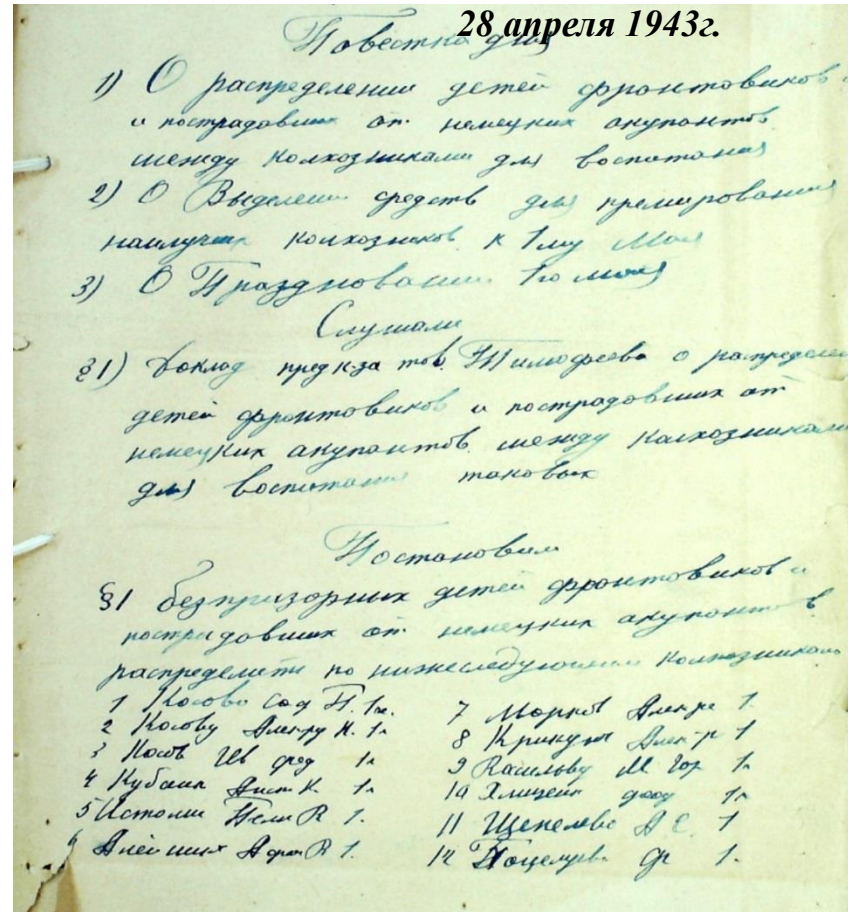 28 апреля 1943г.
Повестка дня
1) О распределении детей фронтовиков
и пострадавших от немецких окупантов
между колхозниками для воспитания
2) О Выделении средств для премирования
наилучших колхозников к 1му Мая
3) О Праздновании 1го мая
Слушали
§1) Доклад пред к-за тов. Тимофеева о распределен
детей фронтовиков и пострадавших от
немецких акупантов между колхозниками
для воспитания таковых
Постановили
§1 безпризорних детей фронтовиков и
пострадавших от немецких акупантов
распределить по нижеследующим колхозникам
1 Косово П. 1
2 Косову Алек-ру К. 1
3 Косов Ив фед 1
4 К. 1
5 1.
6 1.
7 Алек-ре 1.
8 Алек-р 1
9 М 1
10 1
11 Щепелева А С. 1
12 1.